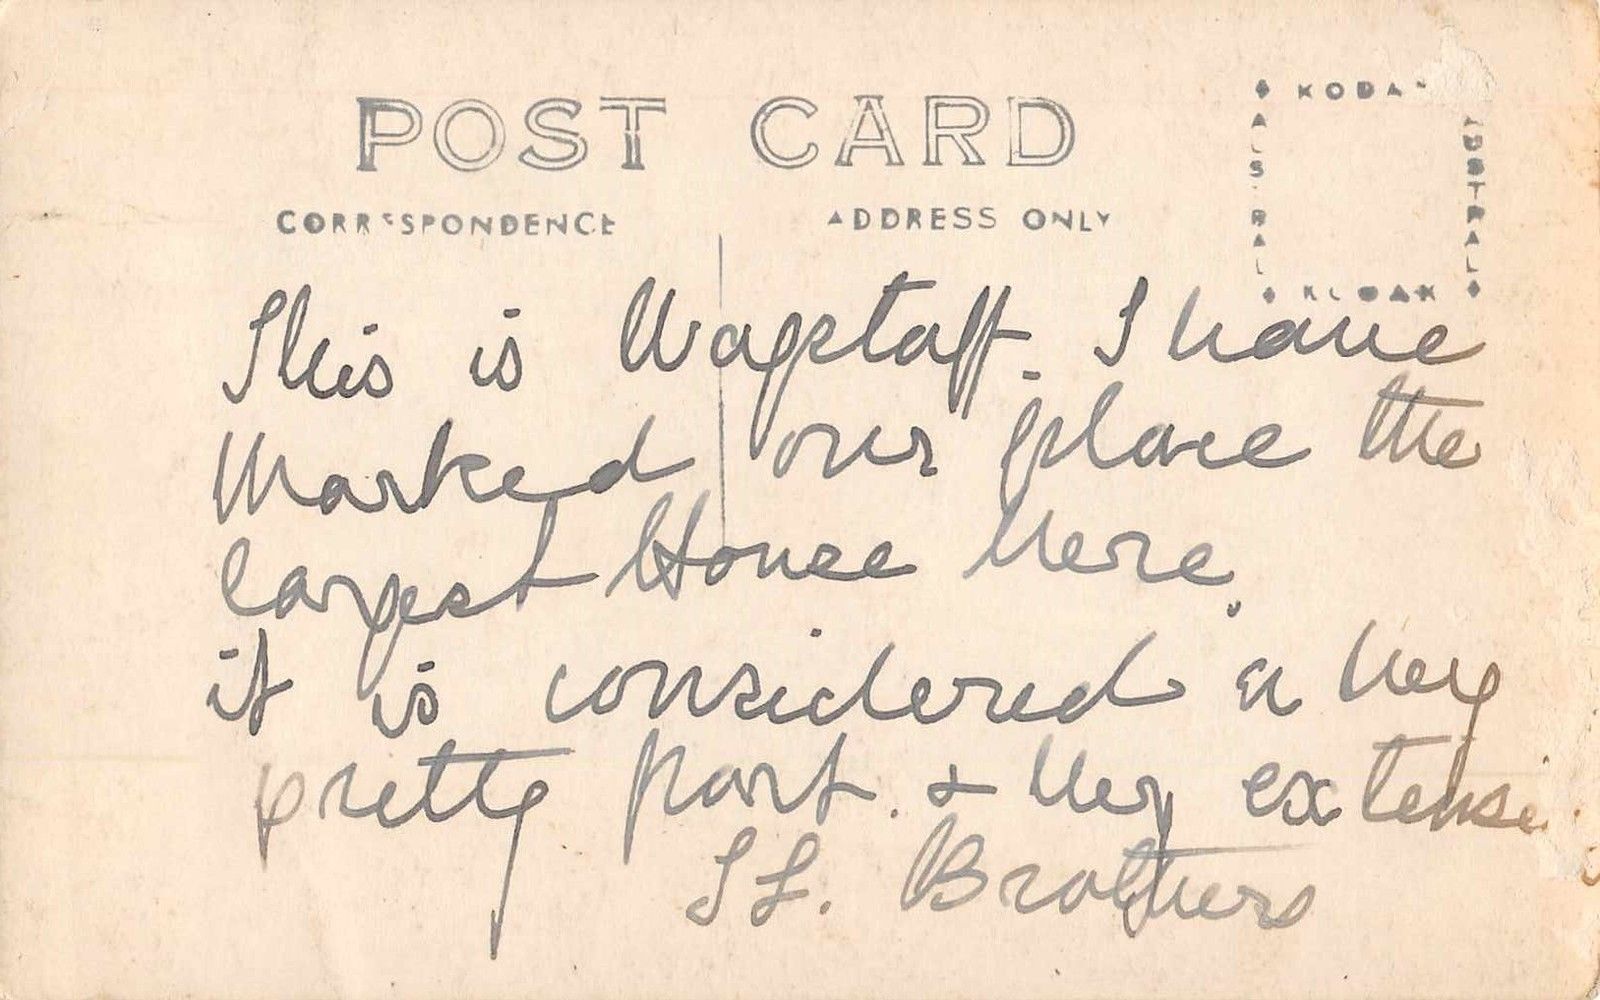 POST CARD
CORRESPONDENCE
ADDRESS ONLY
KODAK
AUSTRAL
AUSTRAL
KODAK
This is Wagstaff. I have
Marked our place the
largest House here.
it is considered a very
pretty part. + very extensi
S L. Brothers